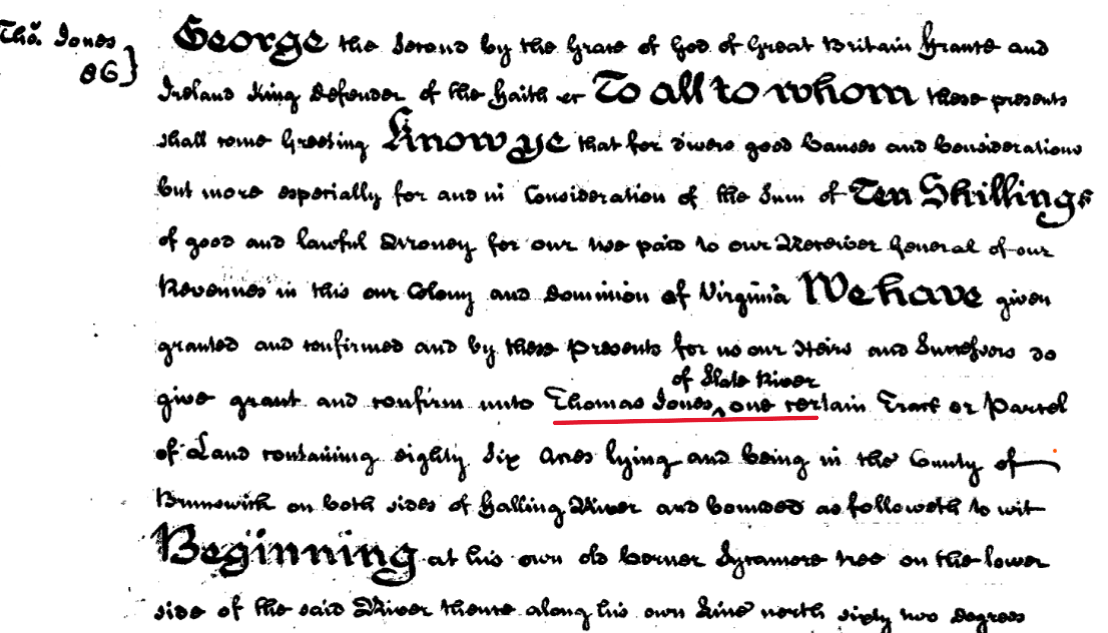 Tho. Jones
86}
George the Second by the Grace of God of Great Britain France and
Ireland King Defender of the Faith &c To all to whom these presents
shall come Greeting Know ye that for divers good Causes and Considerations
but more especially for and in Consideration of the Sum of Ten Shillings
of good and lawful Money for our use paid to our Receiver General of our
Revenues in this our Colony and Dominion of Virginia We have given
granted and confirmed and by these Presents for us our Heirs and Successors do
of Slate River
give grant and confirm unto Thomas Jones ‸ one certain Tract or Parcel
of Land containing eighty Six Acres lying and being in the County of
Brunswick on both sides of Falling River and bounded as followeth to wit
Beginning at his own old Corner Sycamore tree on the lower
side of the said River thence along his own Line north sixty two degrees